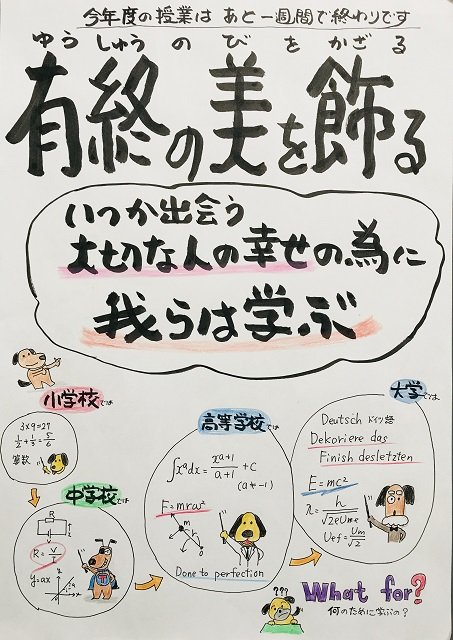 今年度の授業は あと一週間で終わりです
ゆうしゅうのびをかざる
有終の美を飾る
いつか出会う
大切な人の幸せの為に
我らは学ぶ
小学校では
3×9=27
1/2+1/3=5/6
算数
中学校では
R=V/I
y=ax
高等学校では
∫x^a dx = x^(a+1)/(a+1) + C
(a≠-1)
F=mrω²
m
r
Done to perfection
大学では
Deutsch ドイツ語
Dekoriere das
Finish desletzten
E=mc²
λ=h/√2eUme
Uef=Um/√2
???
What for?
何のために学ぶの?